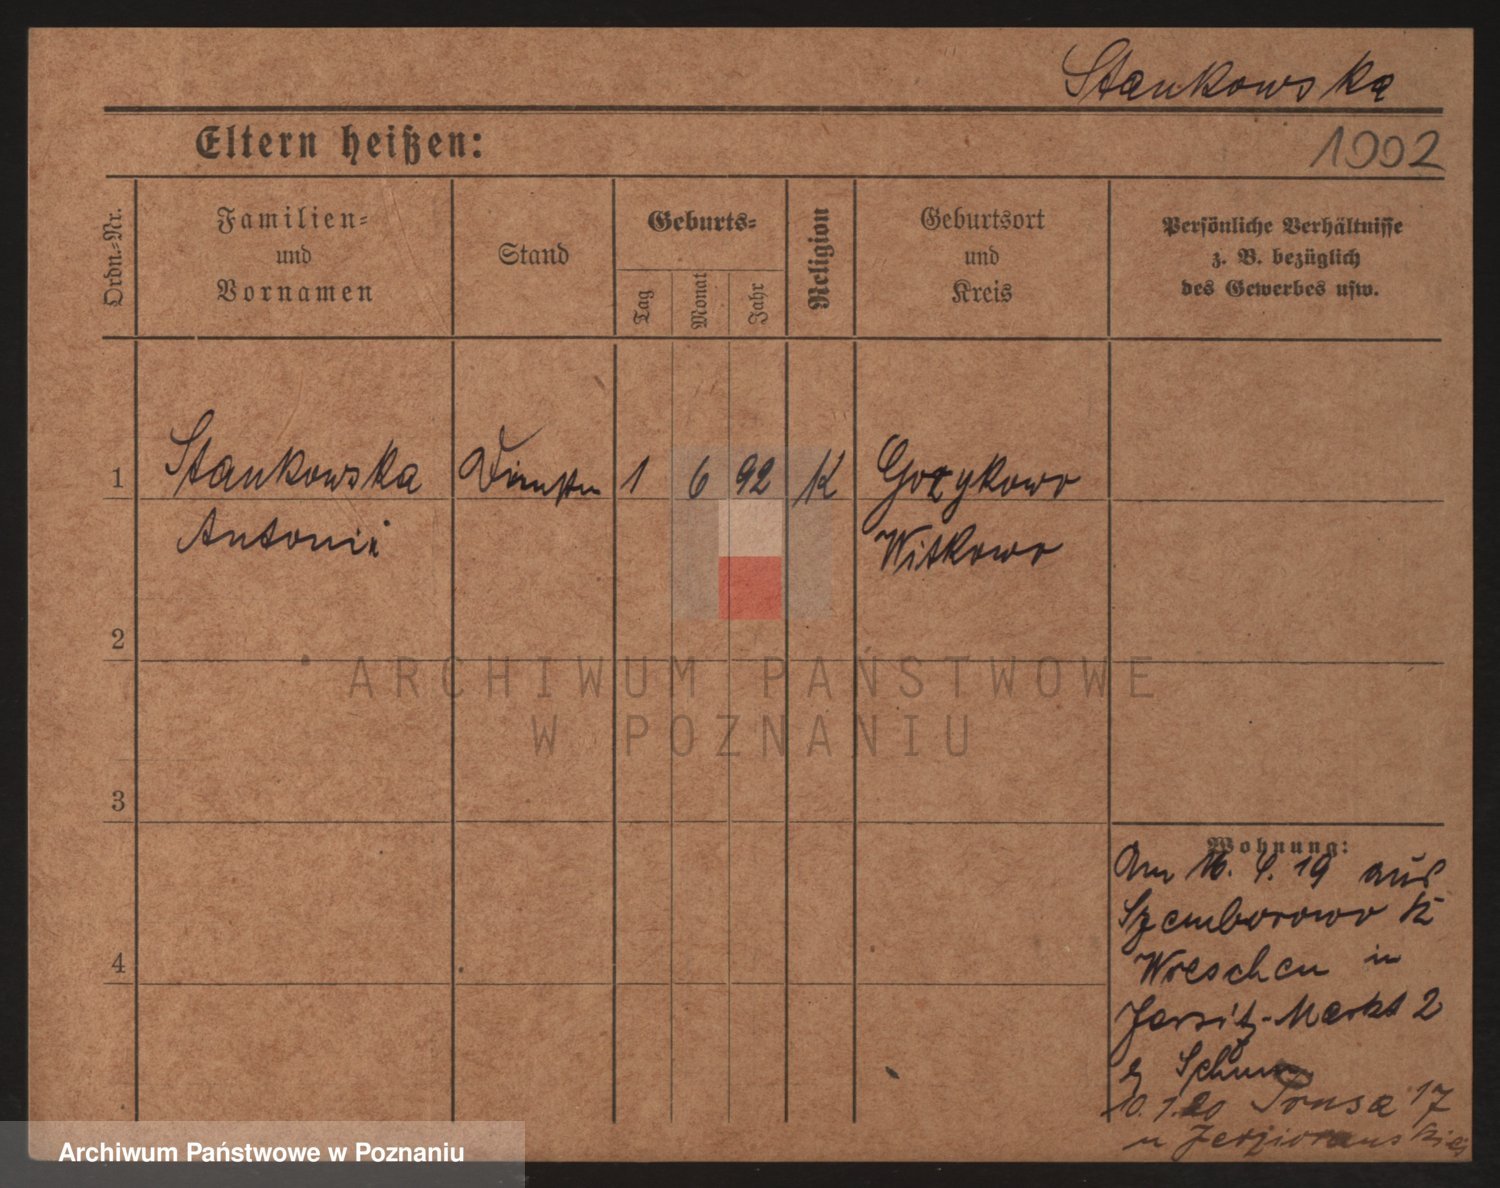 Stankowska
Eltern heißen:
1902
Ordn.-Nr.
Familien-
und
Vornamen
Stand
Geburts-
Tag
Monat
Jahr
Religion
Geburtsort
und
Kreis
Persönliche Verhältnisse
z. B. bezüglich
des Gewerbes usw.
1
Stankowska
1 6 92 K
Gorzykowo
Antonii
Witkowo
2
ARCHIWUM PAŃSTWOWE
W POZNANIU
3
Wohnung:
Am 16. 4. 19 aus
Szemborowo K
4
Wreschen in
Jersitz-Markt 2
10. 1. 20 Prusa 17
u
Archiwum Państwowe w Poznaniu